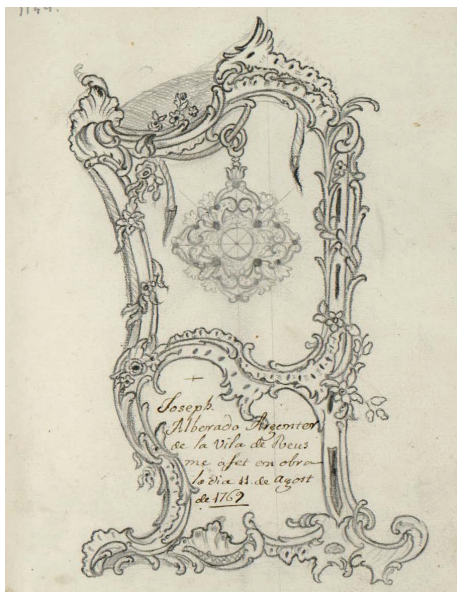 Joseph
Alberado Argenter
de la Vila de Reus
me á fet en obra
lo dia 11 de Agost
de 1769